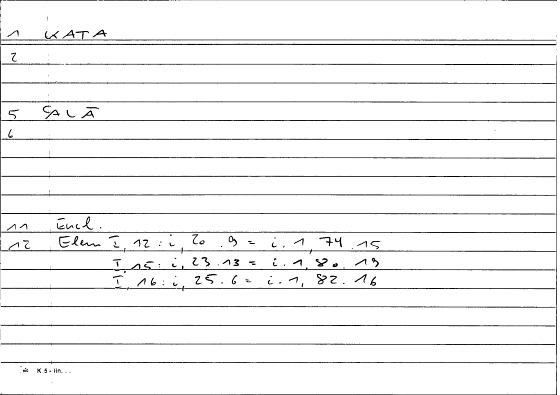 1 KATA
2
5 ṢALĀ
6
11 Eucl.
12 Elem I, 12 : i, 20 . 9 = i . 1, 74 . 15
I, 15 : i, 23 . 13 = i . 1, 80 . 19
I, 16 : i, 25 . 6 = i . 1, 82 . 16
K 5 - lin. . .